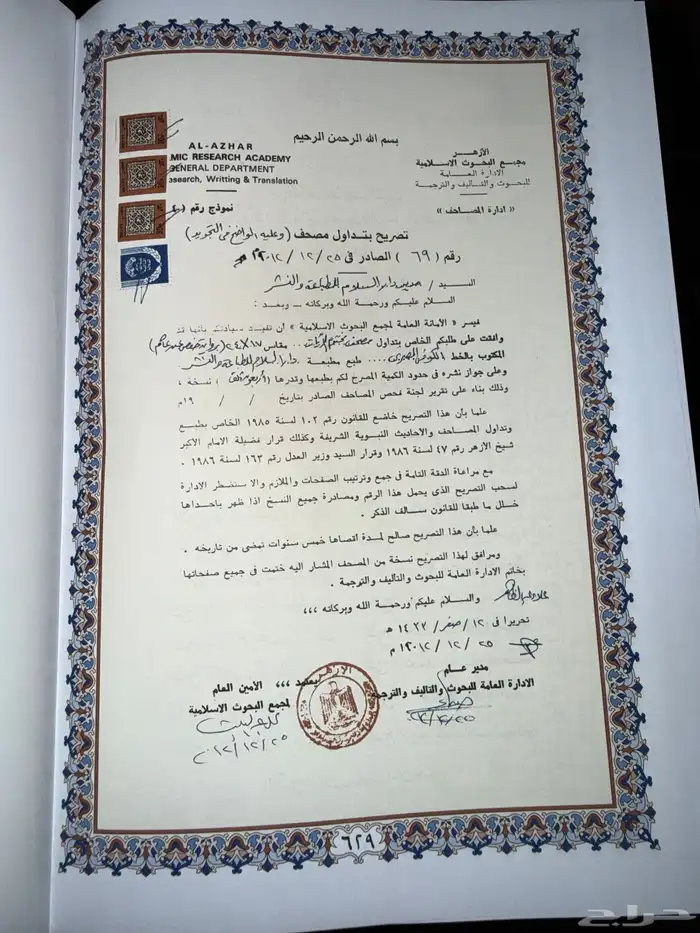 بسم الله الرحمن الرحيم
AL-AZHAR
MIC RESEARCH ACADEMY
GENERAL DEPARTMENT
esearch, Writting & Translation
الأزهــر
مجمع البحوث الاسلامية
الادارة العـامـة
للبحوث والتأليف والترجمة
« ادارة المصاحف »
نموذج رقم
تصريح بتداول مصحف (وعليه الواضح في التجويد)
رقم ( ٦٩ ) الصادر فى ٢٥ / ١٢ / ٢٠١٢ م
السيد / مدير دار السلام للطباعة والنشر
السلام عليكم ورحمة الله وبركاته ــ وبعد :
فيسر « الأمانة العامة لمجمع البحوث الاسلامية » أن تفيد سيادتكم بأنها قد
وافقت على طلبكم الخاص بتداول مصحف مقاس ١٧×٢٤ (برواية حفص عن عاصم)
المكتوب بالخط الكوفى المصرى .... طبع مطبعة دار السلام للطباعة والنشر
وعلى جواز نشره فى حدود الكمية المصرح لكم بطبعها وقدرها (أربعون ألف) نسخة ،
وذلك بناء على تقرير لجنة فحص المصاحف الصادر بتاريخ / / ١٩م
علما بأن هذا التصريح خاضع للقانون رقم ١٠٢ لسنة ١٩٨٥ الخاص بطبع
وتداول المصاحف والأحاديث النبوية الشريفة وكذلك قرار فضيلة الامام الأكبر
شيخ الأزهر رقم ٤٧ لسنة ١٩٨٦ وقرار السيد وزير العدل رقم ١٦٣ لسنة ١٩٨٦ .
مع مراعاة الدقة التامة فى جمع وترتيب الصفحات والملازم والا ستضطر الادارة
لسحب التصريح الذى يحمل هذا الرقم ومصادرة جميع النسخ اذا ظهر باحداها
خلل ما طبقا للقانون سالف الذكر .
علما بأن هذا التصريح صالح لمدة أقصاها خمس سنوات تمضى من تاريخه .
ومرافق لهذا التصريح نسخة من المصحف المشار اليه ختمت فى جميع صفحاتها
بخاتم الادارة العامة للبحوث والتأليف والترجمة .
والسلام عليكم ورحمة الله وبركاته ،،،
تحريرا فى ١٢ / صفر / ١٤٣٣ هـ
٢٥ / ١٢ / ٢٠١٢ م
مدير عـام
الادارة العامة للبحوث والتأليف والترجمة
٢٠١٢/١٢/٢٥
يعتمد ،،، الأمين العام
لمجمع البحوث الاسلامية
٢٠١٢/١٢/٢٥
الأزهر
٦٢٩
حراج